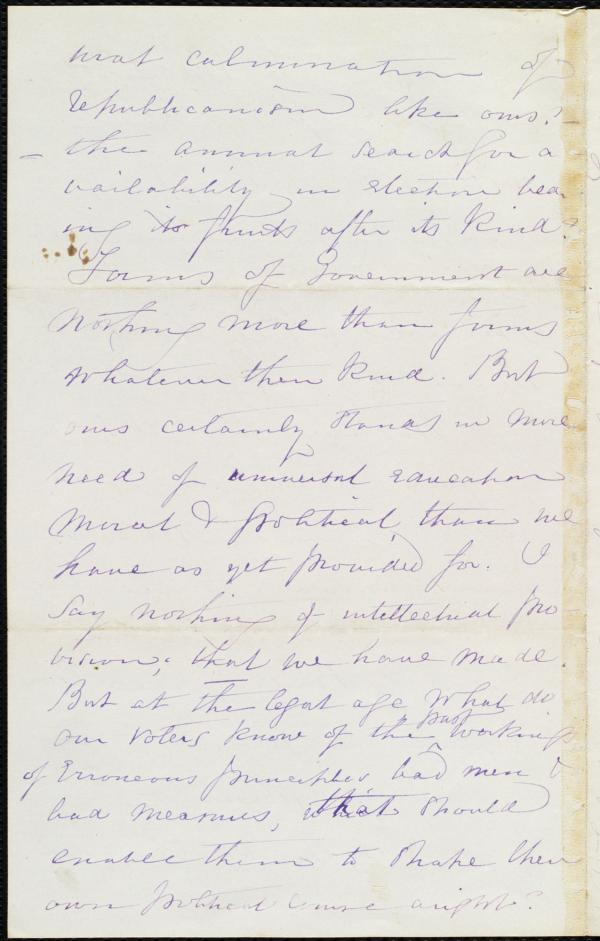 ural culmination of
republicanism like ours?
– the annual search for a-
vailability in election bear
ing its fruits after its kind?
Forms of Government are
nothing more than forms
whatever their kind. But
ours certainly stands in more
need of universal education
moral & political, than we
have as yet provided for. I
say nothing of intellectual pro-
vision; that we have made.
But at the legal age what do
our voters know of the past workings
of erroneous principles, bad men &
bad measures, that should
enable them to shape their
own political course aright?